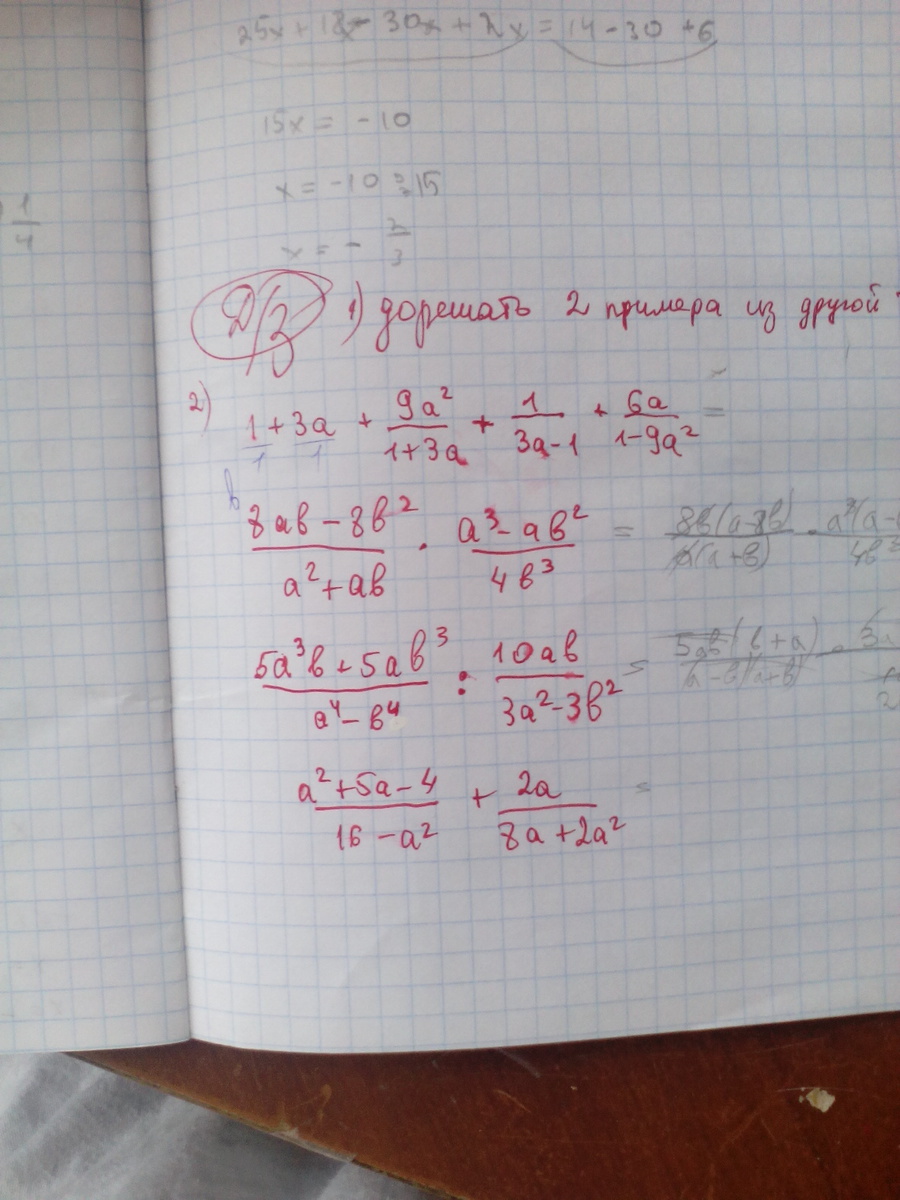 25x + 18 - 30x + 2x = 14 - 30 + 6
15x = -10
x = -10 : 15
x = - 2/3
1/4
Д/з 1) дорешать 2 примера из другой
2) 1/1 + 3a/1 + 9a²/(1+3a) + 1/(3a-1) + 6a/(1-9a²) =
(8ab - 8b²)/(a² + ab) · (a³ - ab²)/(4b³) =
(5a³b + 5ab³)/(a⁴ - b⁴) : 10ab/(3a² - 3b²) =
(a² + 5a - 4)/(16 - a²) + 2a/(8a + 2a²) =